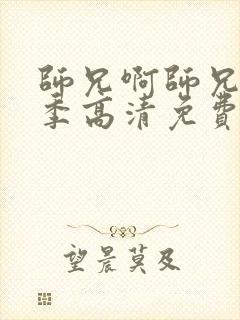 師兄啊師兄
季高清免費
望晨莫及